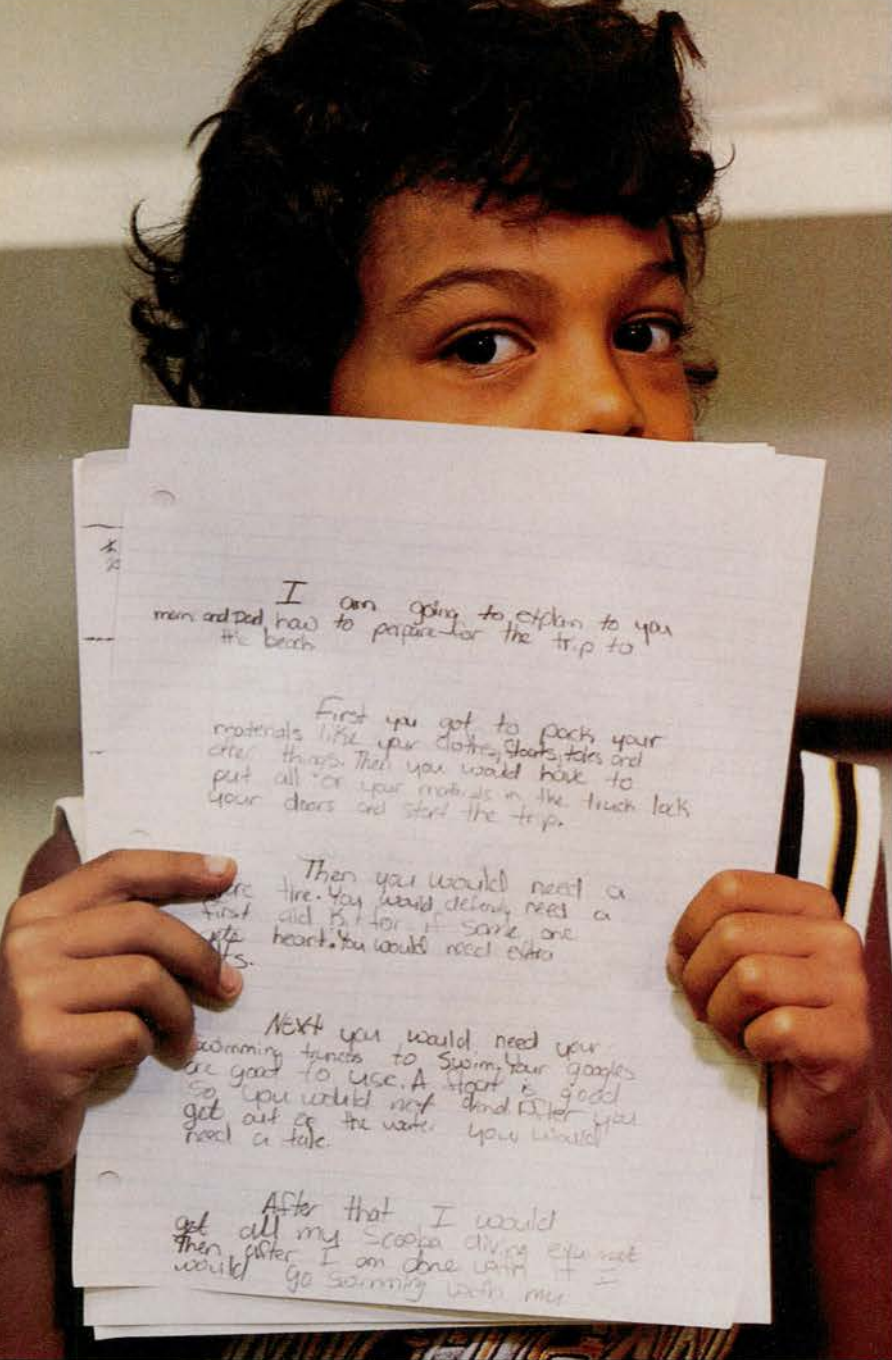 I am going to explan to you
mom and Dad, how to prepare for the trip to
the beach
First you got to pack your
materials like your clothes, Shorts, toles and
other things. Then you would have to
put all or your materials in the truck lock
your doors and start the trip.
Then you would need a
tire. You would defenly need a
first aid kit for if some one
heart. You would need extra
Next you would need your
swimming truncks to Swim. Your googles
are good to use. A float is good
so you would not And After you
get out of the water you would
need a tale.
After that I would
get all my Scooba diving
Then after I am done with it I
would go swimming with my